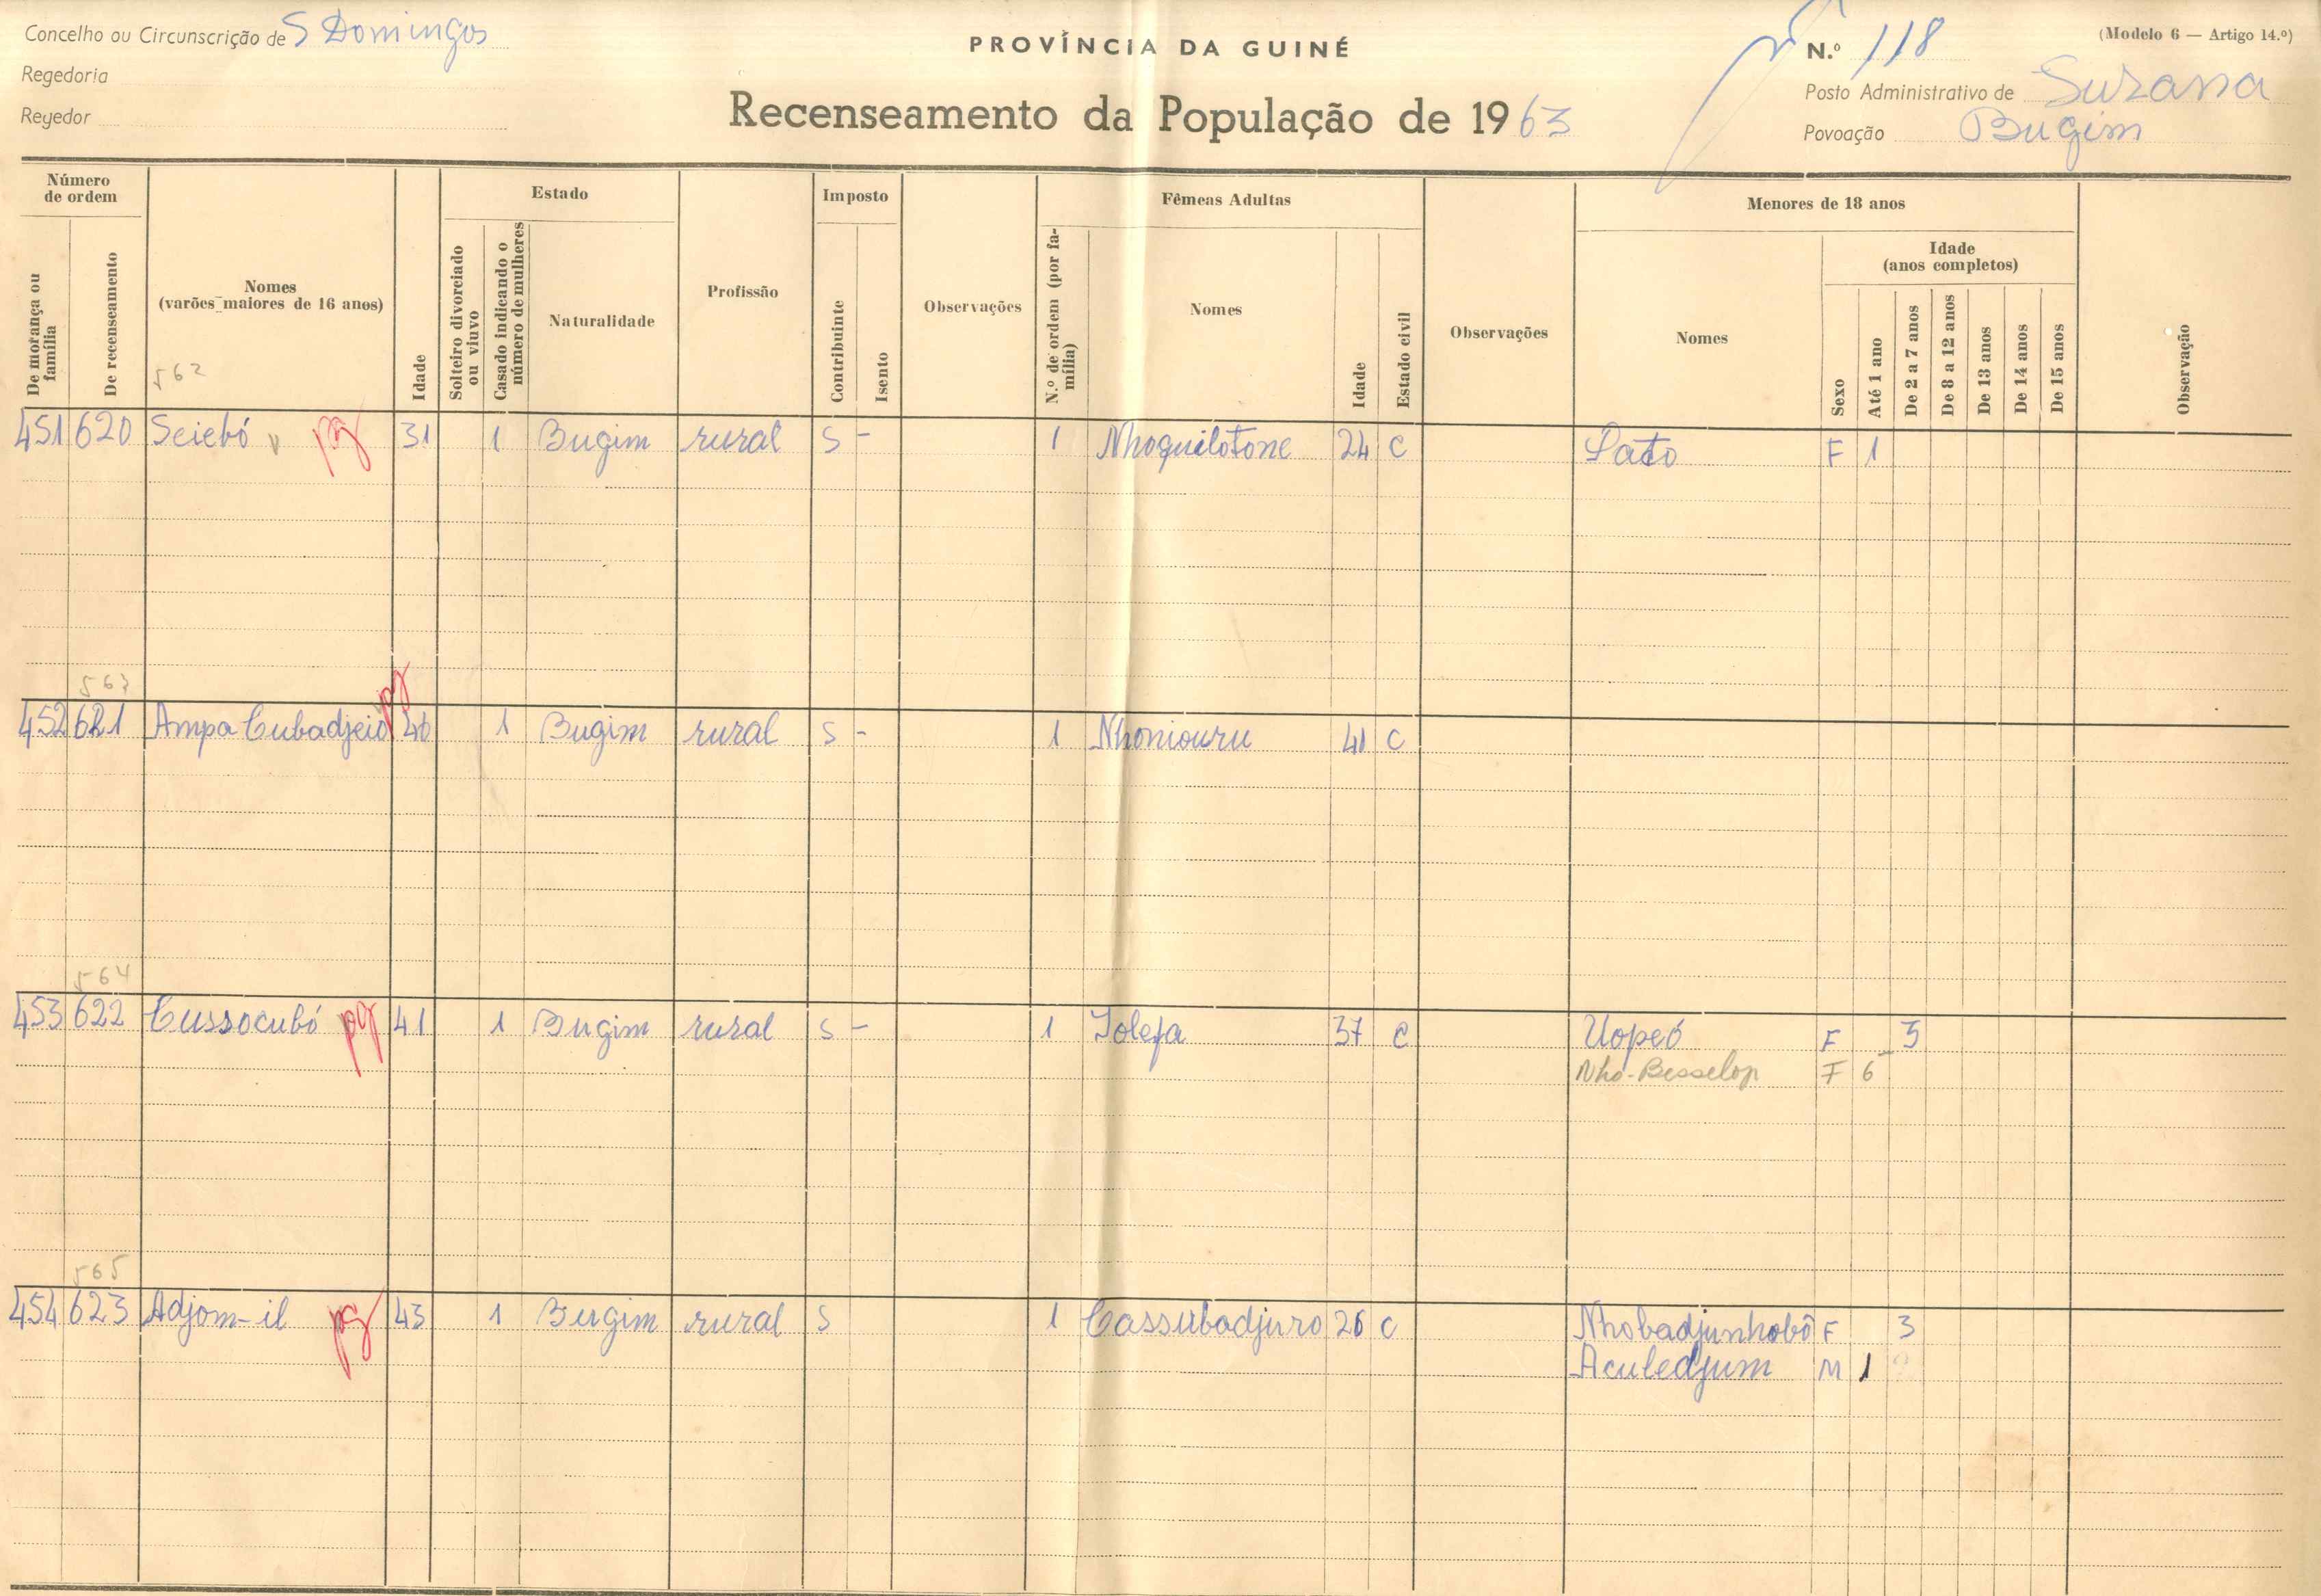 Concelho ou Circunscrição de S Domingos
Regedoria
Regedor
PROVÍNCIA DA GUINÉ
Recenseamento da População de 1963
N.º 118
(Modelo 6 — Artigo 14.º)
Posto Administrativo de Suzana
Povoação Bugim
Número de ordem
De morança ou família
De recenseamento
Nomes
(varões maiores de 16 anos)
562
Idade
Estado
Solteiro divorciado ou viuvo
Casado indicando o número de mulheres
Naturalidade
Profissão
Imposto
Contribuinte
Isento
Observações
Fêmeas Adultas
N.º de ordem (por família)
Nomes
Idade
Estado civil
Observações
Menores de 18 anos
Nomes
Sexo
Idade
(anos completos)
Até 1 ano
De 2 a 7 anos
De 8 a 12 anos
De 13 anos
De 14 anos
De 15 anos
Observação
451 620 Seiebó pg 31 1 Bugim rural S - 1 Nhoquilotone 24 C Sato F 1
563
452 621 Ampa Cubadjeio pg 46 1 Bugim rural S - 1 Nhoniouru 41 C
564
453 622 Cussocubó pg 41 1 Bugim rural S - 1 Iolefa 37 C Uopeó F 5
Nho-Besselop F 6
565
454 623 Adjom-il pg 43 1 Bugim rural S 1 Cassubadjuro 26 C Nhobadjunhobô F 3
Aculedjum M 1